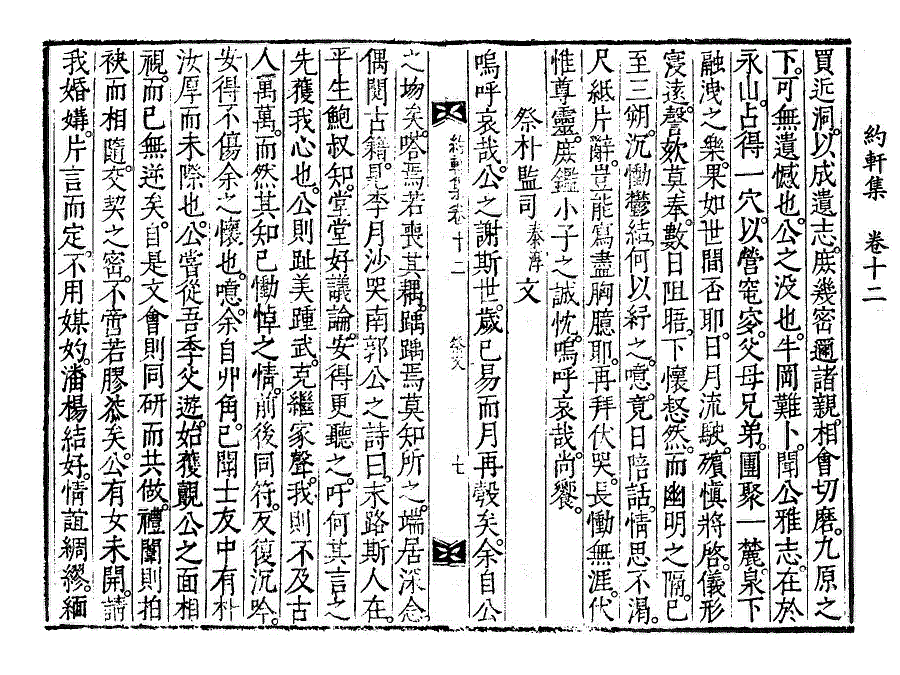 約軒集　卷十二
買近洞。以成遺志。庶幾密邇諸親。相會切磨。九原之
下。可無遺憾也。公之沒也。牛岡難卜。聞公雅志。在於
永山。占得一穴。以營窀穸。父母兄弟。團聚一麓。泉下
融洩之樂。果如世間否耶。日月流駛。殯愼將啓。儀形
寖遠。謦欬莫奉。數日阻晤。下懷惄然。而幽明之隔。已
至三朔。沉慟鬱結。何以紓之。噫。竟日陪話。情思不渴。
尺紙片辭。豈能寫盡胸臆耶。再拜伏哭。長慟無涯。伏
惟尊靈。庶鑑小子之誠忱。嗚呼哀哉。尙饗。
祭朴監司泰淳文
嗚呼哀哉。公之謝斯世。歲已易而月再彀矣。余自公
約軒集卷十二　祭文　七
之場矣。嗒焉若喪其耦。踽焉莫知所之。端居深念
偶閱古籍。見李月沙哭南郭公之詩曰。末路斯人在。
平生鮑叔知。堂堂好議論。安得更聽之。吁何其言之
先獲我心也。公則趾美踵武。克繼家聲。我則不及古
人萬萬。而然其知己慟悼之情。前後同符。反復沉吟。
安得不傷余之懷也。噫。余自丱角。已聞士友中有朴
汝厚而未際也。公嘗從吾季父遊。始獲覿公之面。相
視而已無逆矣。自是文會則同硏而共做。禮闈則拍
袂而相隨。交契之密。不啻若膠桼矣。公有女未開。請
我婚媾。片言而定。不用媒妁。潘楊結好。情誼綢繆。緬